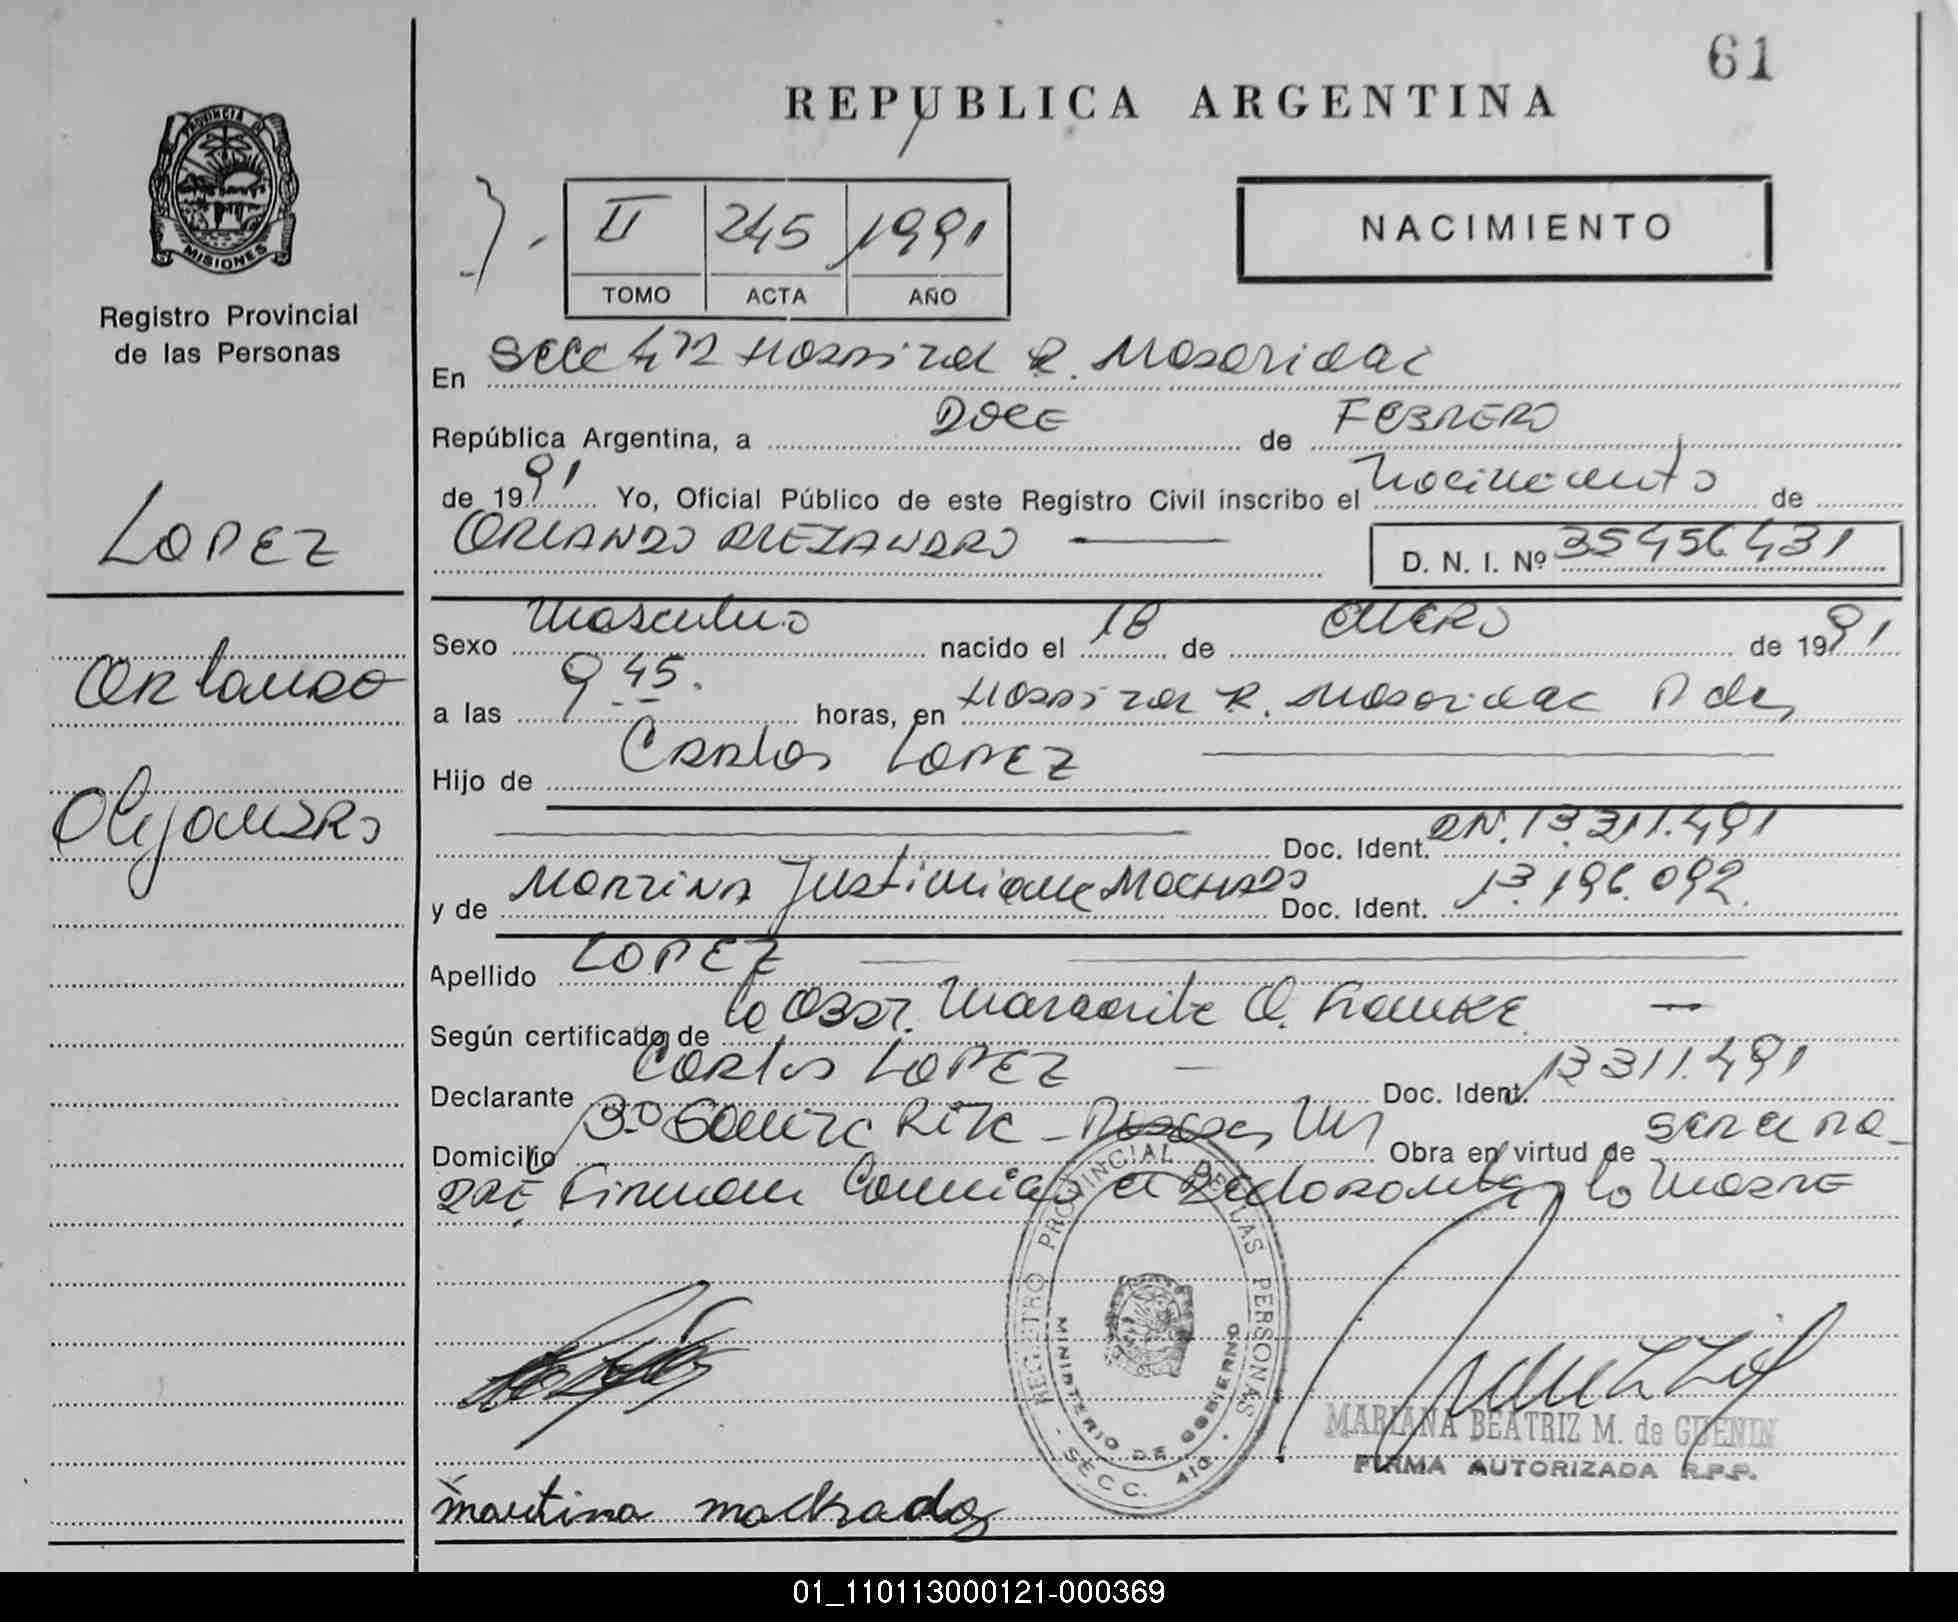 61
REPUBLICA ARGENTINA
PROVINCIA DE
MISIONES
Registro Provincial
de las Personas
II 245 1991
TOMO ACTA AÑO
NACIMIENTO
En Secc 4ta Hospital R. Madariaga
República Argentina, a DOCE de FEBRERO
de 1991 Yo, Oficial Público de este Registro Civil inscribo el Nacimiento de
ORLANDO ALEJANDRO
D. N. I. Nº 35456431
LOPEZ
Orlando
Alejandro
Sexo Masculino nacido el 18 de ENERO de 1991
a las 9 45. horas, en Hospital R. Madariaga Pdas
Hijo de Carlos LOPEZ
Doc. Ident. DN. 13.311.491
y de MARTINA Justiniana MACHADO Doc. Ident. 13.196.092.
Apellido LOPEZ
Según certificado de la Obst. Margarita O.
Declarante Carlos LOPEZ Doc. Ident. 13311.491
Domicilio Bº Santa Rita - Posadas Mnes Obra en virtud de ser el pa-
DRE Firman Conmigo el Declarante y la Madre
REGISTRO PROVINCIAL DE LAS PERSONAS
MINISTERIO DE GOBIERNO
SECC. 4ta.
MARIANA BEATRIZ M. de GUENIN
FIRMA AUTORIZADA R.P.P.
martina machado
01_110113000121-000369